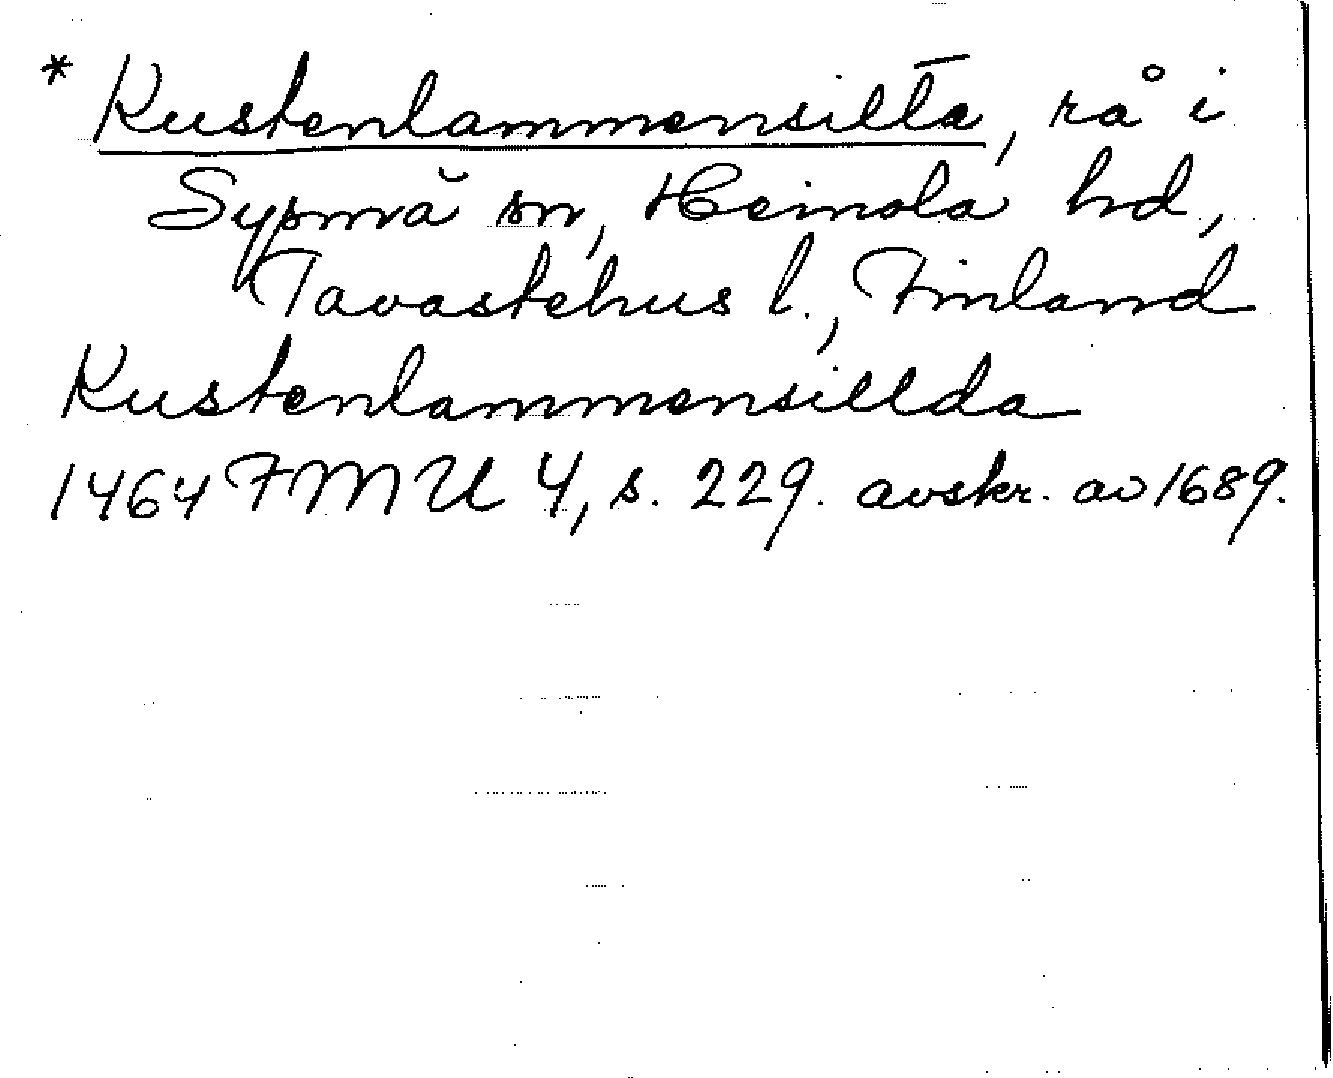 * Kustenlammensilta, rå i
Sysmä sn, Heinola hd,
Tavastehus l., Finland
Kustenlammensillda
1464 FMU 4, s. 229. avskr. av 1689.